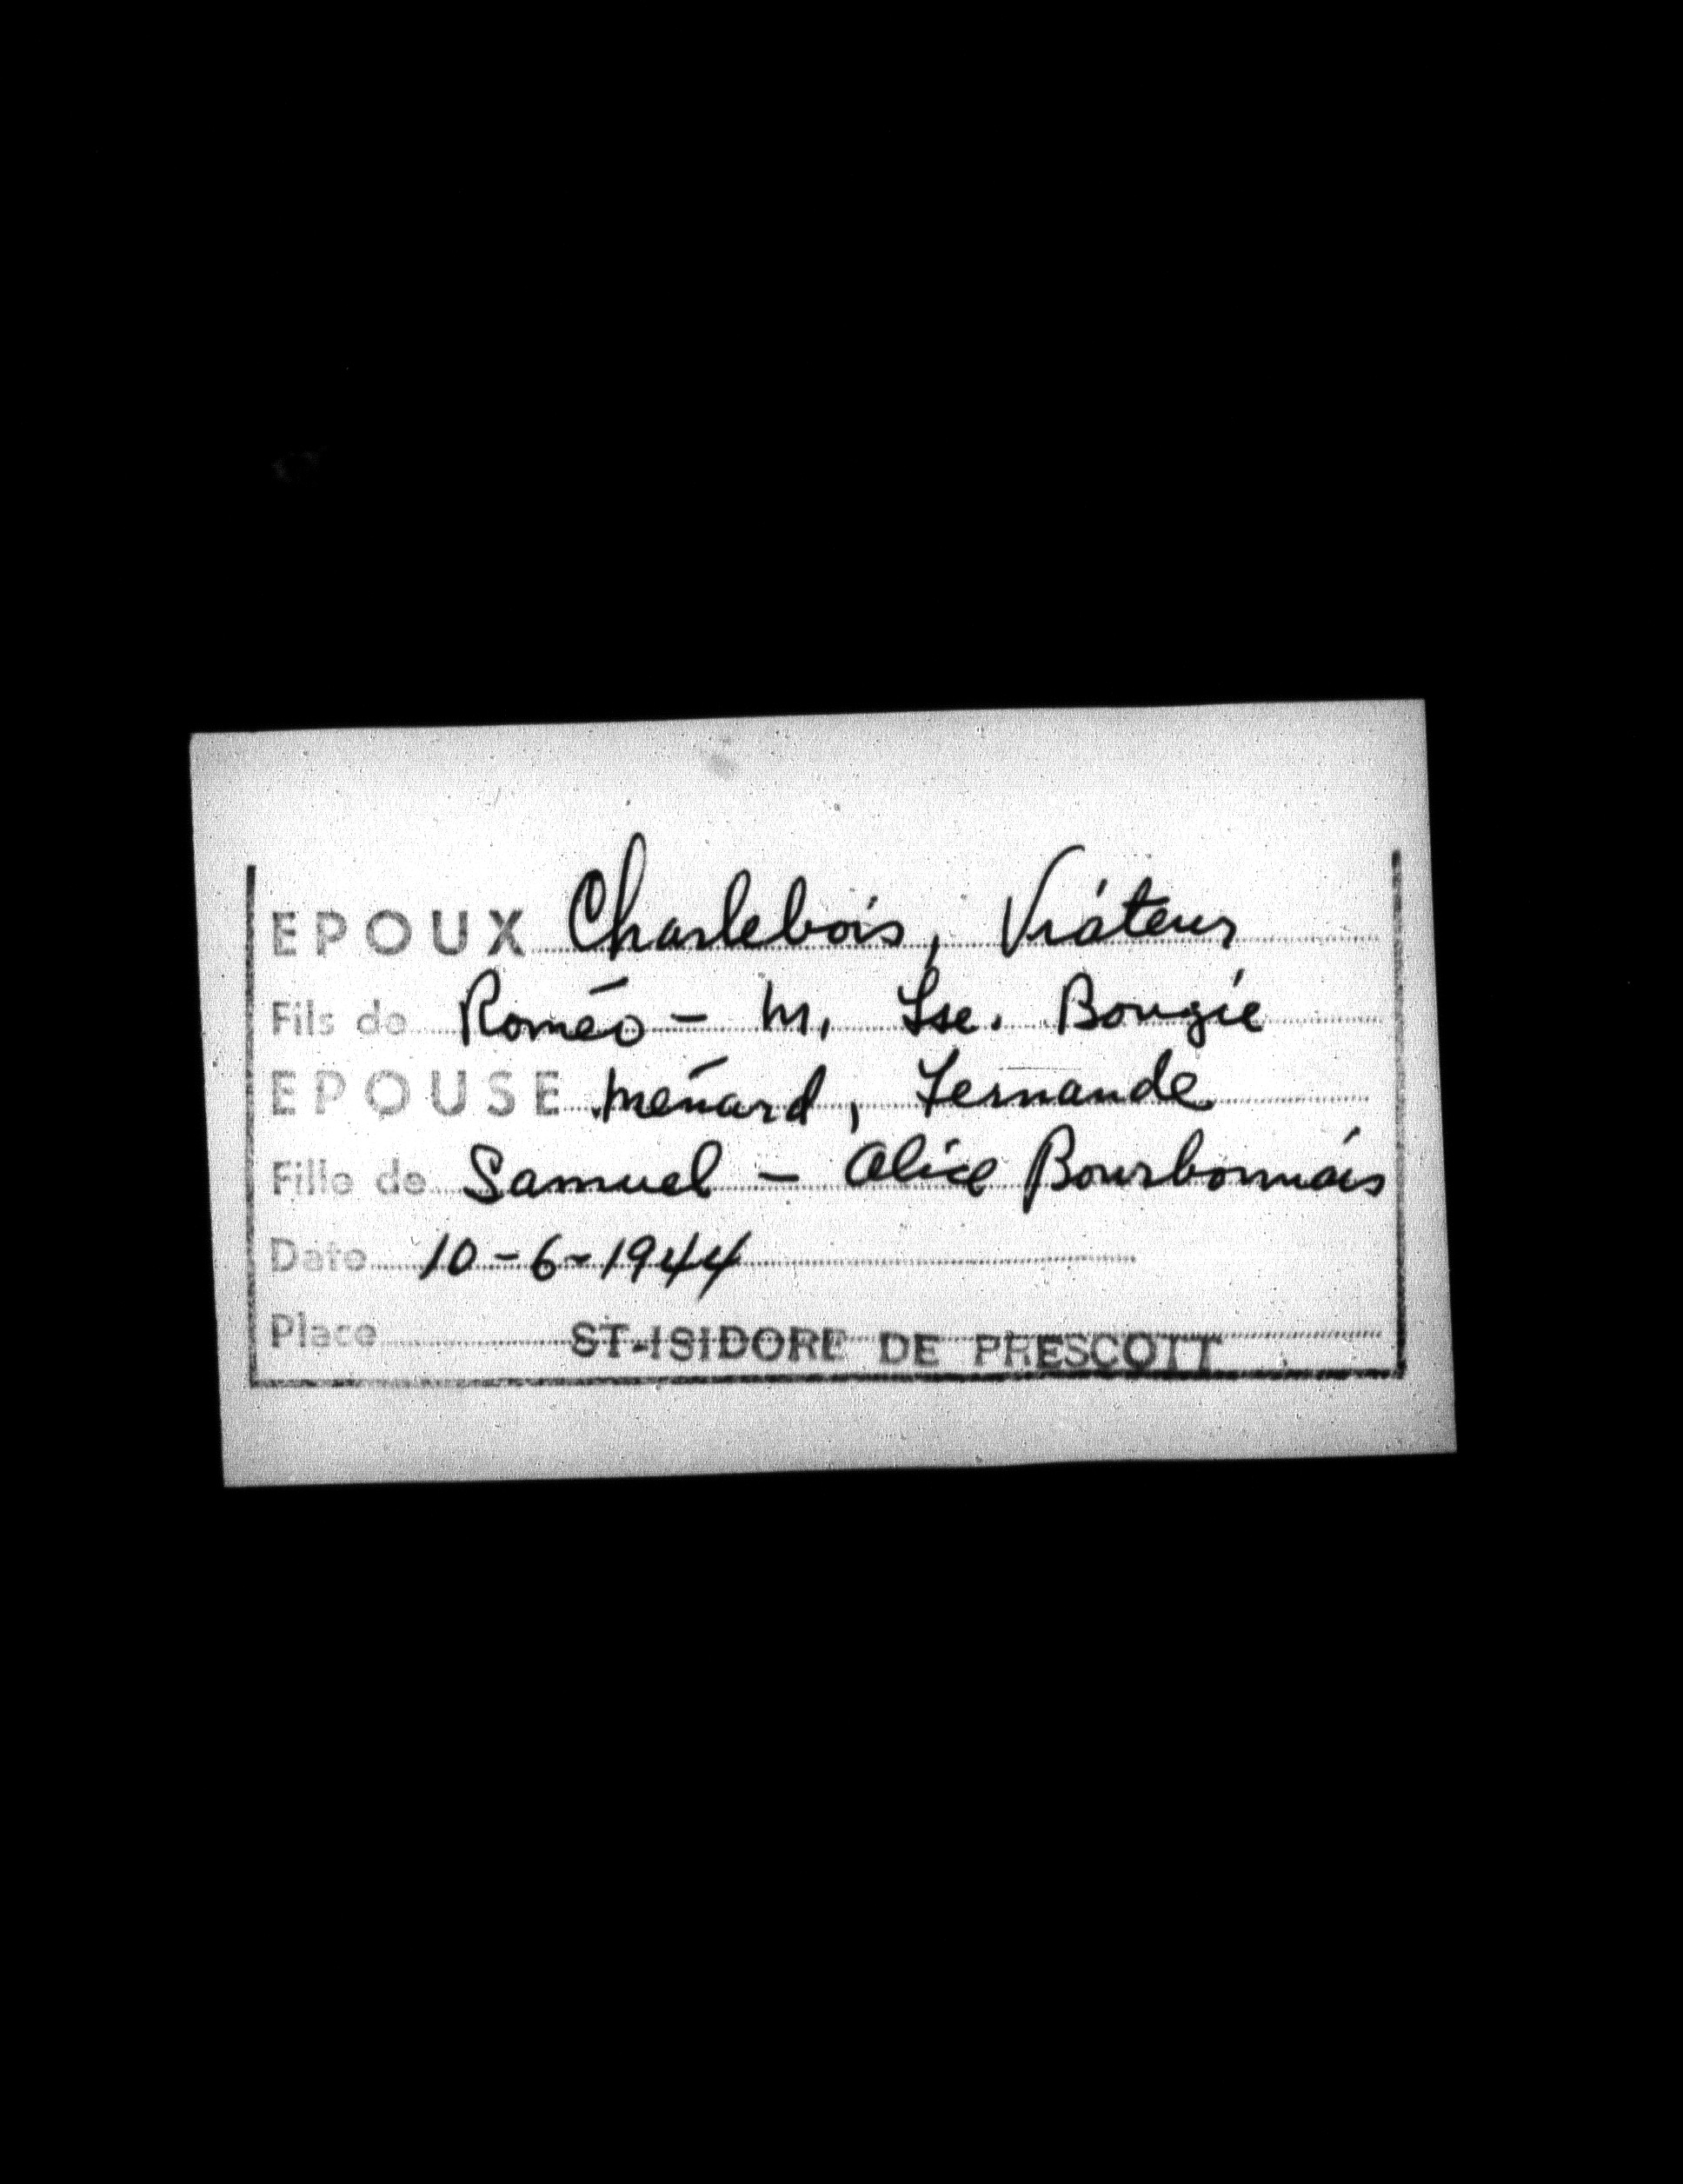 EPOUX Charlebois, Viateur
Fils de Roméo - M. Lse. Bougie
EPOUSE Ménard, Fernande
Fille de Samuel - Alice Bourbonnais
Date 10-6-1944
Place ST-ISIDORE DE PRESCOTT